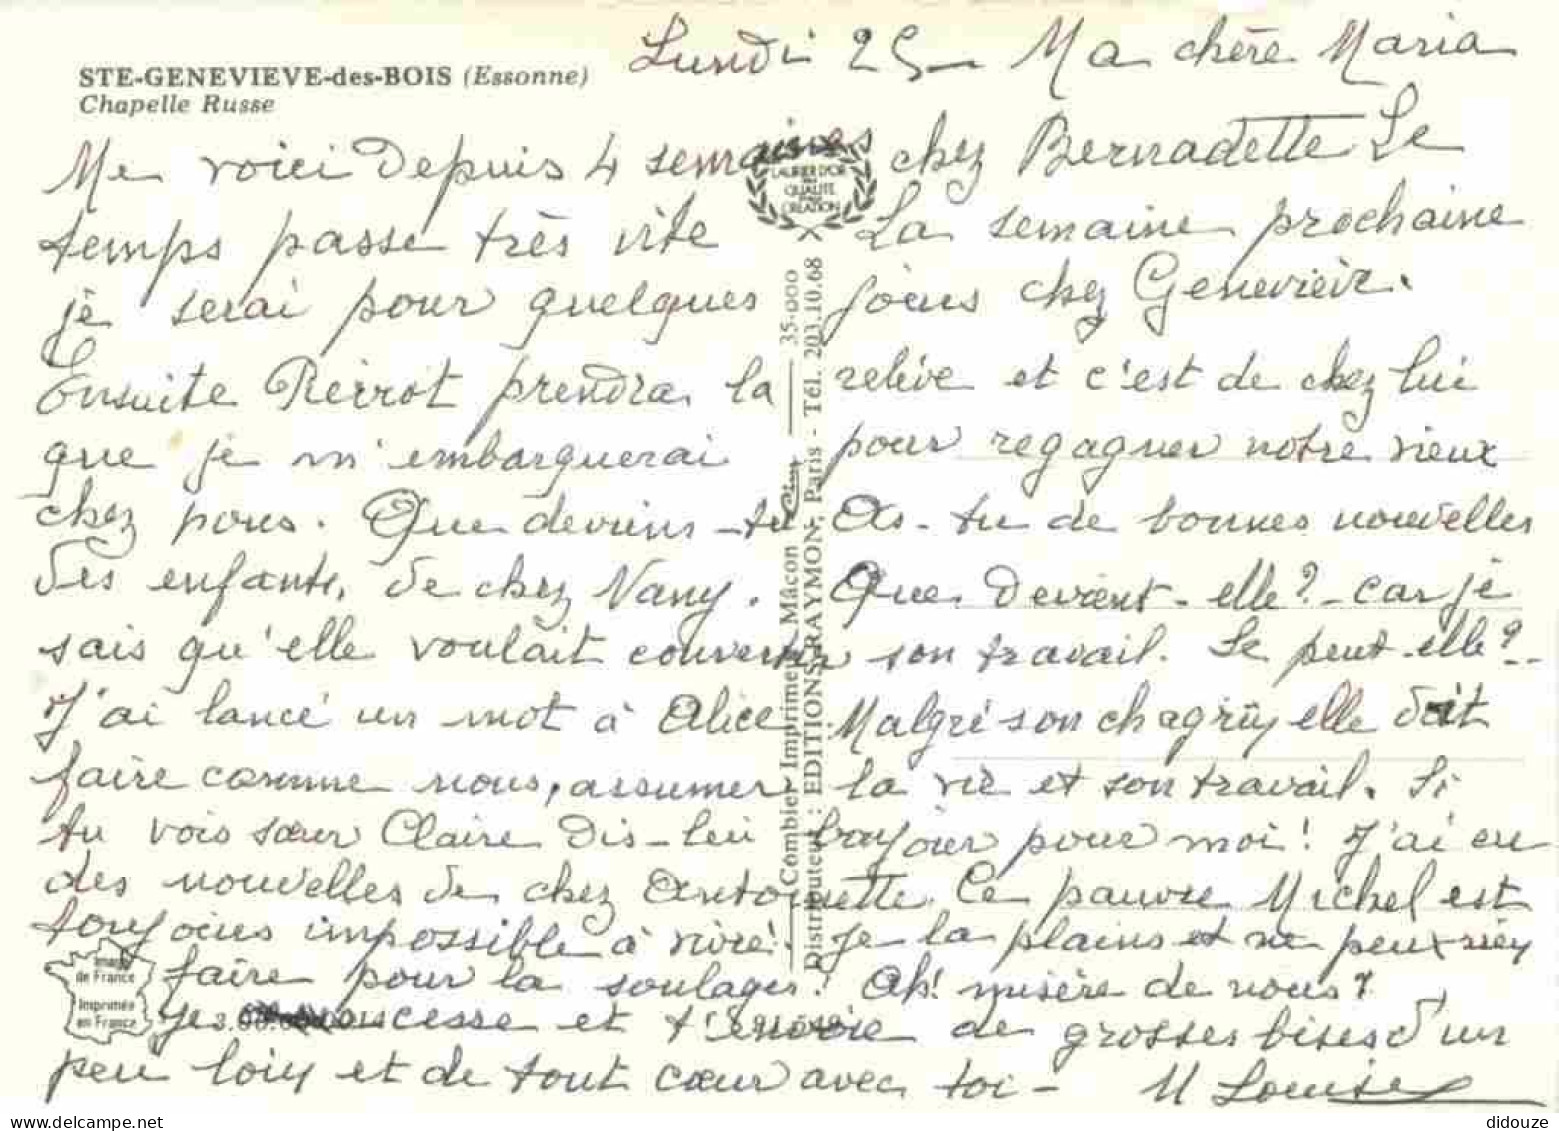 Lundi 25 - Ma chère Maria
STE-GENEVIEVE-des-BOIS (Essonne)
Chapelle Russe
Me voici depuis 4 semaines chez Bernadette Le
temps passe très vite La semaine prochaine
je serai pour quelques jours chez Geneviève.
Ensuite Pierrot prendra la relève et c'est de chez lui
que je m'embarquerai pour regagner notre vieux
chez nous. Que deviens-tu As-tu de bonnes nouvelles
des enfants, de chez Nany. Que devient-elle? - car je
sais qu'elle voulait son travail. Le peut-elle? -
J'ai lancé un mot à Alice. Malgré son chagrin elle doit
faire comme nous, assumer la vie et son travail. Si
tu vois sœur Claire dis-lui bonjour pour moi! J'ai eu
des nouvelles de chez Antoinette. Ce pauvre Michel est
toujours impossible à vivre! Je la plains et ne peux rien
faire pour la soulager! Ah! misère de nous!
Je cesse et t'envoie de grosses bises d'un
peu loin et de tout cœur avec toi - M Louise
LAURIER D'OR
QUALITE
CREATION
Combier Imprimeur Mâcon Cim 35-000
Distributeur : EDITIONS RAYMON, Paris - Tél. 203.10.68
Image
de France
Imprimée
en France
didouze